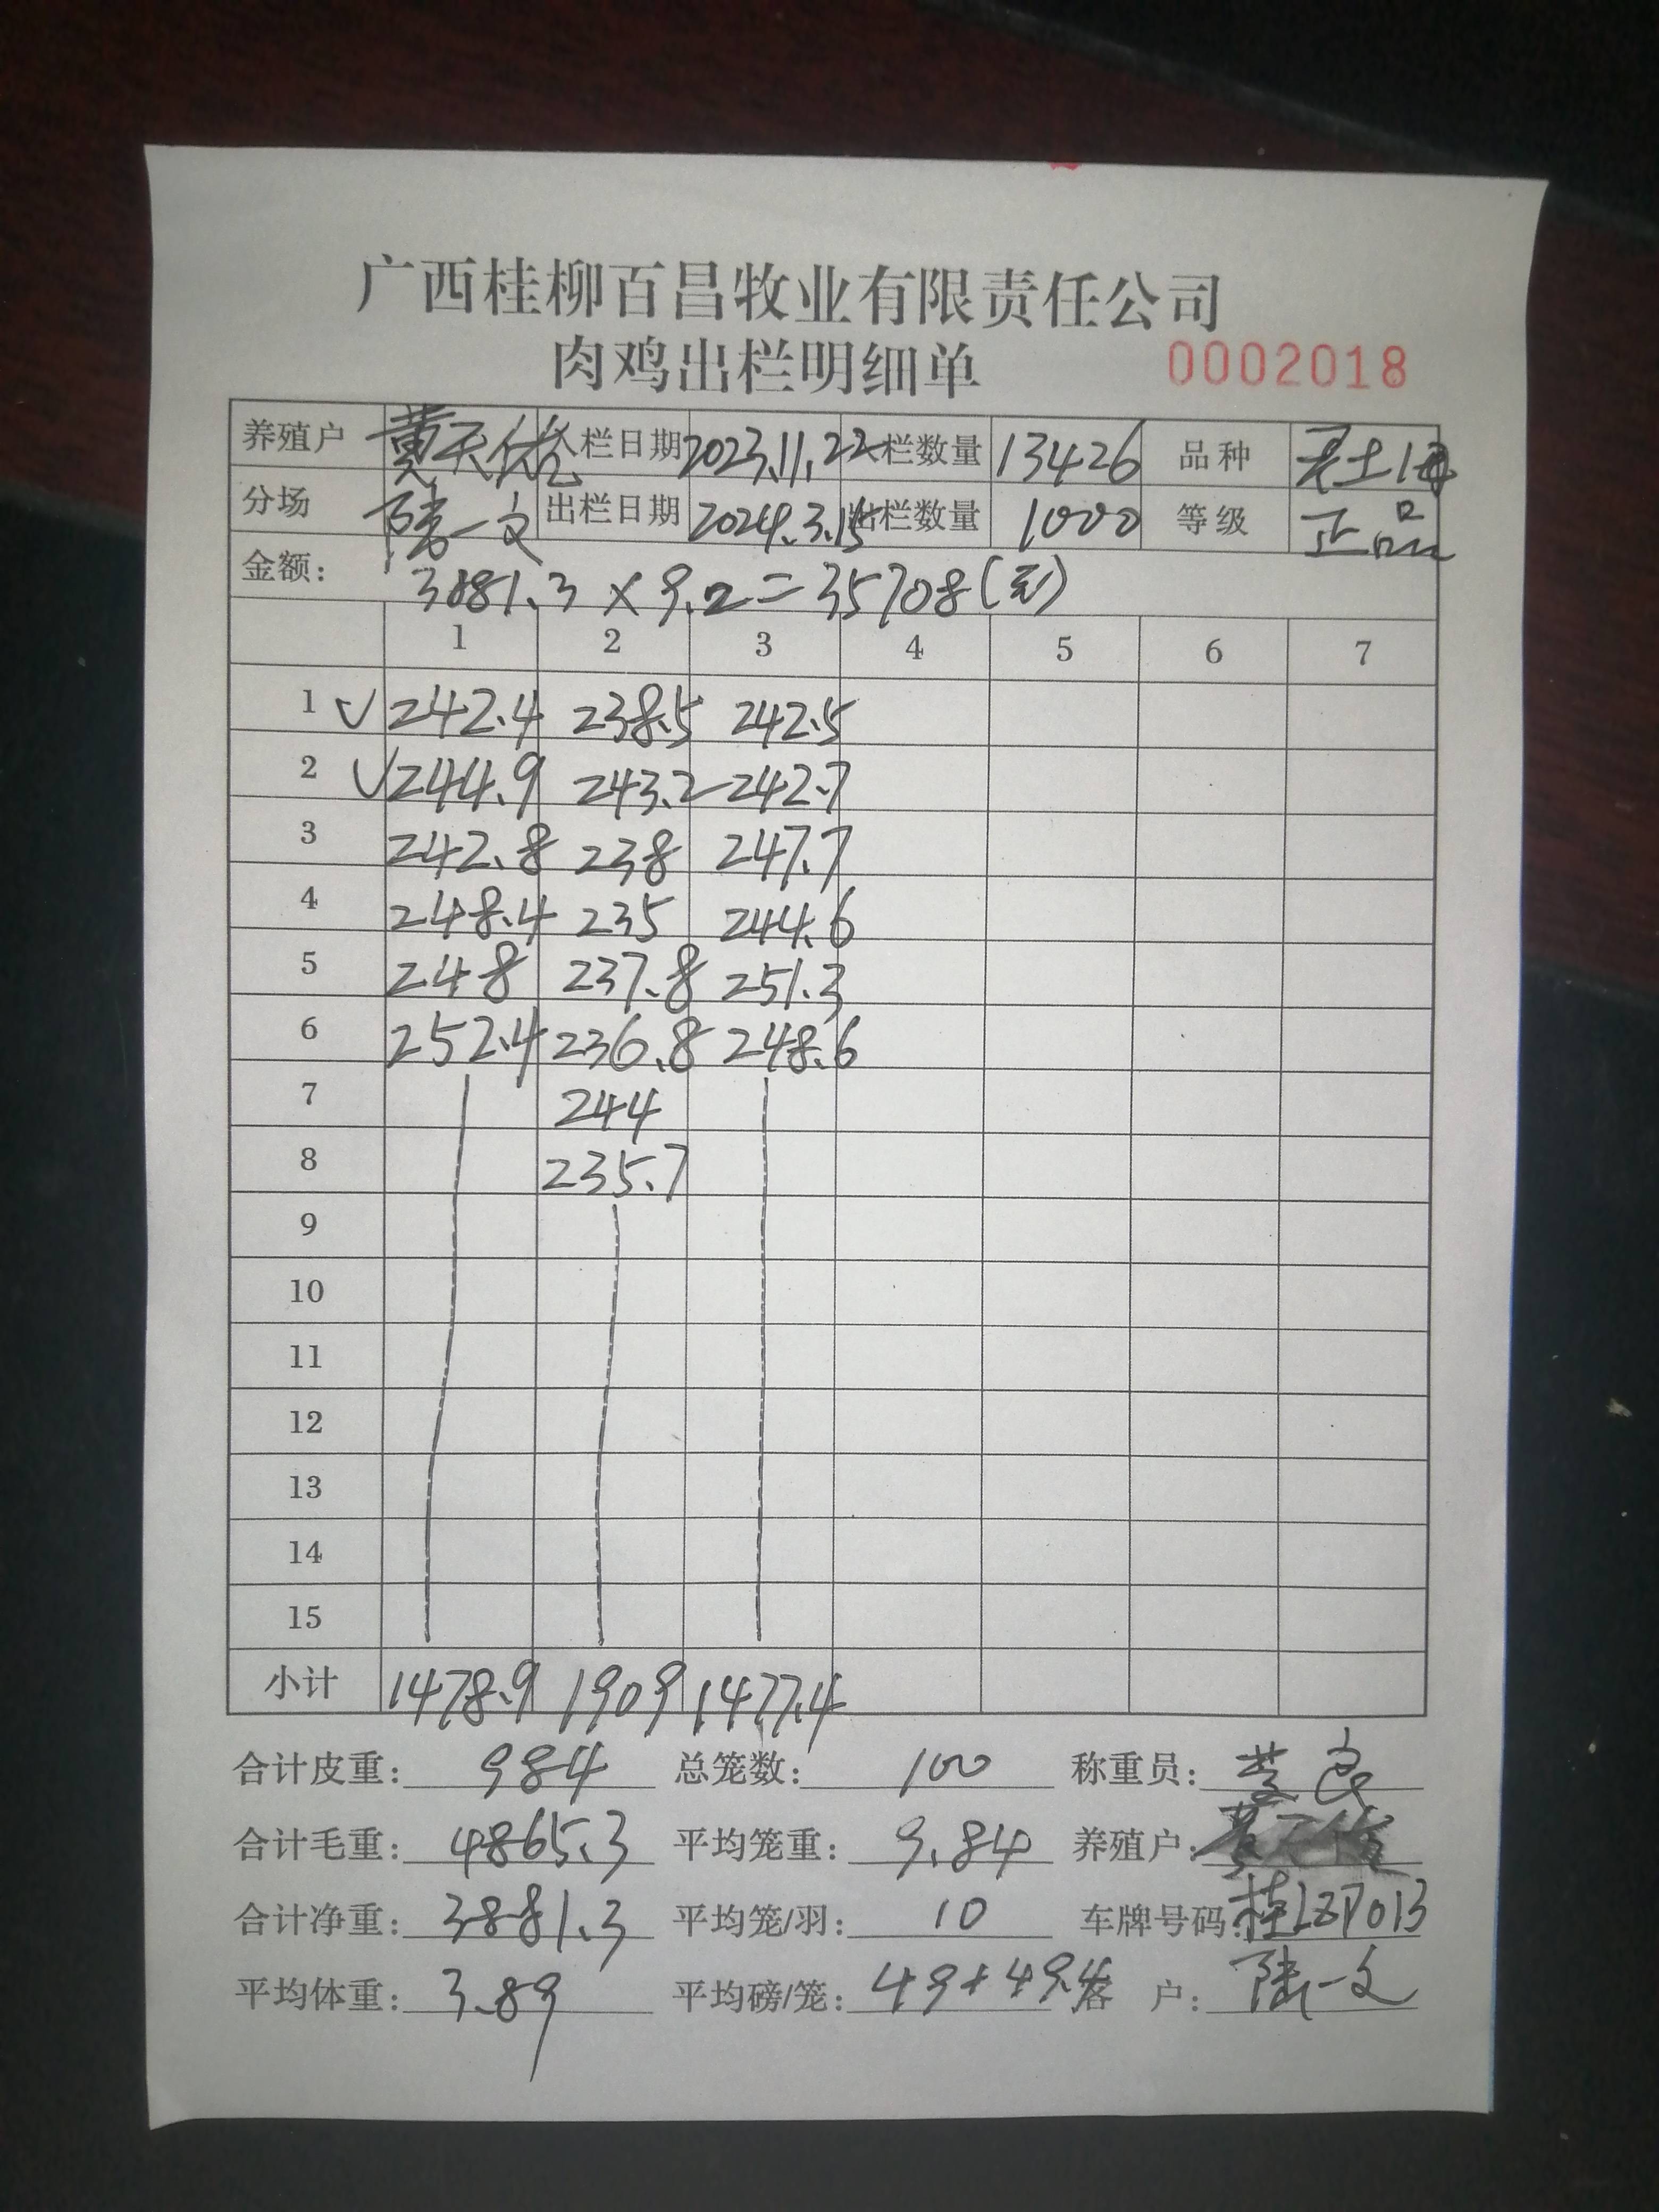 广西桂柳百昌牧业有限责任公司
肉鸡出栏明细单 0002018
养殖户 黄天佑 入栏日期 2023.11.22 入栏数量 13426 品种
分场 陆一文 出栏日期 2024.3.15 出栏数量 1000 等级 正品
金额: 3881.3 × 9.2 = 35708(元)
1 2 3 4 5 6 7
1 ✓ 242.4 238.5 242.5
2 ✓ 244.9 243.2 242.7
3 242.8 238 247.7
4 248.4 235 244.6
5 248 237.8 251.3
6 252.4 236.8 248.6
7 244
8 235.7
9
10
11
12
13
14
15
小计 1478.9 1909 1477.4
合计皮重: 984 总笼数: 100 称重员:
合计毛重: 4865.3 平均笼重: 9.84 养殖户: 黄天佑
合计净重: 3881.3 平均笼/羽: 10 车牌号码:
平均体重: 3.89 平均磅/笼: 49+49.4 客户: 陆一文